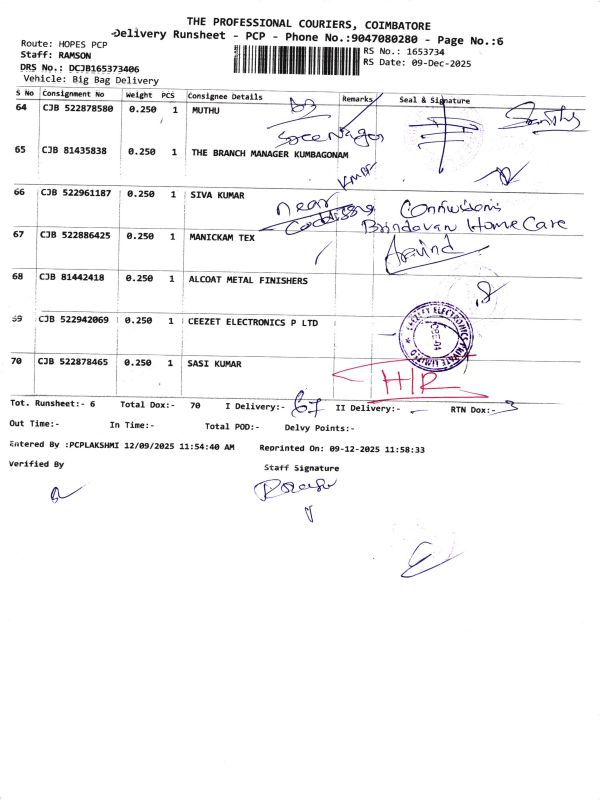 THE PROFESSIONAL COURIERS, COIMBATORE
Delivery Runsheet - PCP - Phone No.:9047080280 - Page No.:6
Route: HOPES PCP
Staff: RAMSON
RS No.: 1653734
DRS No.: DCJB165373406
RS Date: 09-Dec-2025
Vehicle: Big Bag Delivery
S No Consignment No Weight PCS Consignee Details Remarks Seal & Signature
64 CJB 522878580 0.250 1 MUTHU
65 CJB 81435838 0.250 1 THE BRANCH MANAGER KUMBAGONAM
66 CJB 522961187 0.250 1 SIVA KUMAR
near
Brindavan Home Care
67 CJB 522886425 0.250 1 MANICKAM TEX
Arvind
68 CJB 81442418 0.250 1 ALCOAT METAL FINISHERS
69 CJB 522942069 0.250 1 CEEZET ELECTRONICS P LTD
CEEZET ELECTRONICS PRIVATE LIMITED
70 CJB 522878465 0.250 1 SASI KUMAR
H/R
Tot. Runsheet:- 6 Total Dox:- 70 I Delivery:- 67 II Delivery:- - RTN Dox:- 3
Out Time:- In Time:- Total POD:- Delvy Points:-
Entered By :PCPLAKSHMI 12/09/2025 11:54:40 AM Reprinted On: 09-12-2025 11:58:33
Verified By Staff Signature